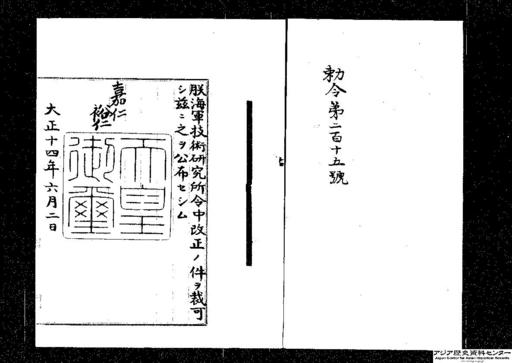 勅令第二百十五號
朕海軍技術研究所令中改正ノ件ヲ裁可
シ茲ニ之ヲ公布セシム
嘉仁
裕仁
天皇
御璽
大正十四年六月二日
アジア歴史資料センター
Japan Center for Asian Historical Records